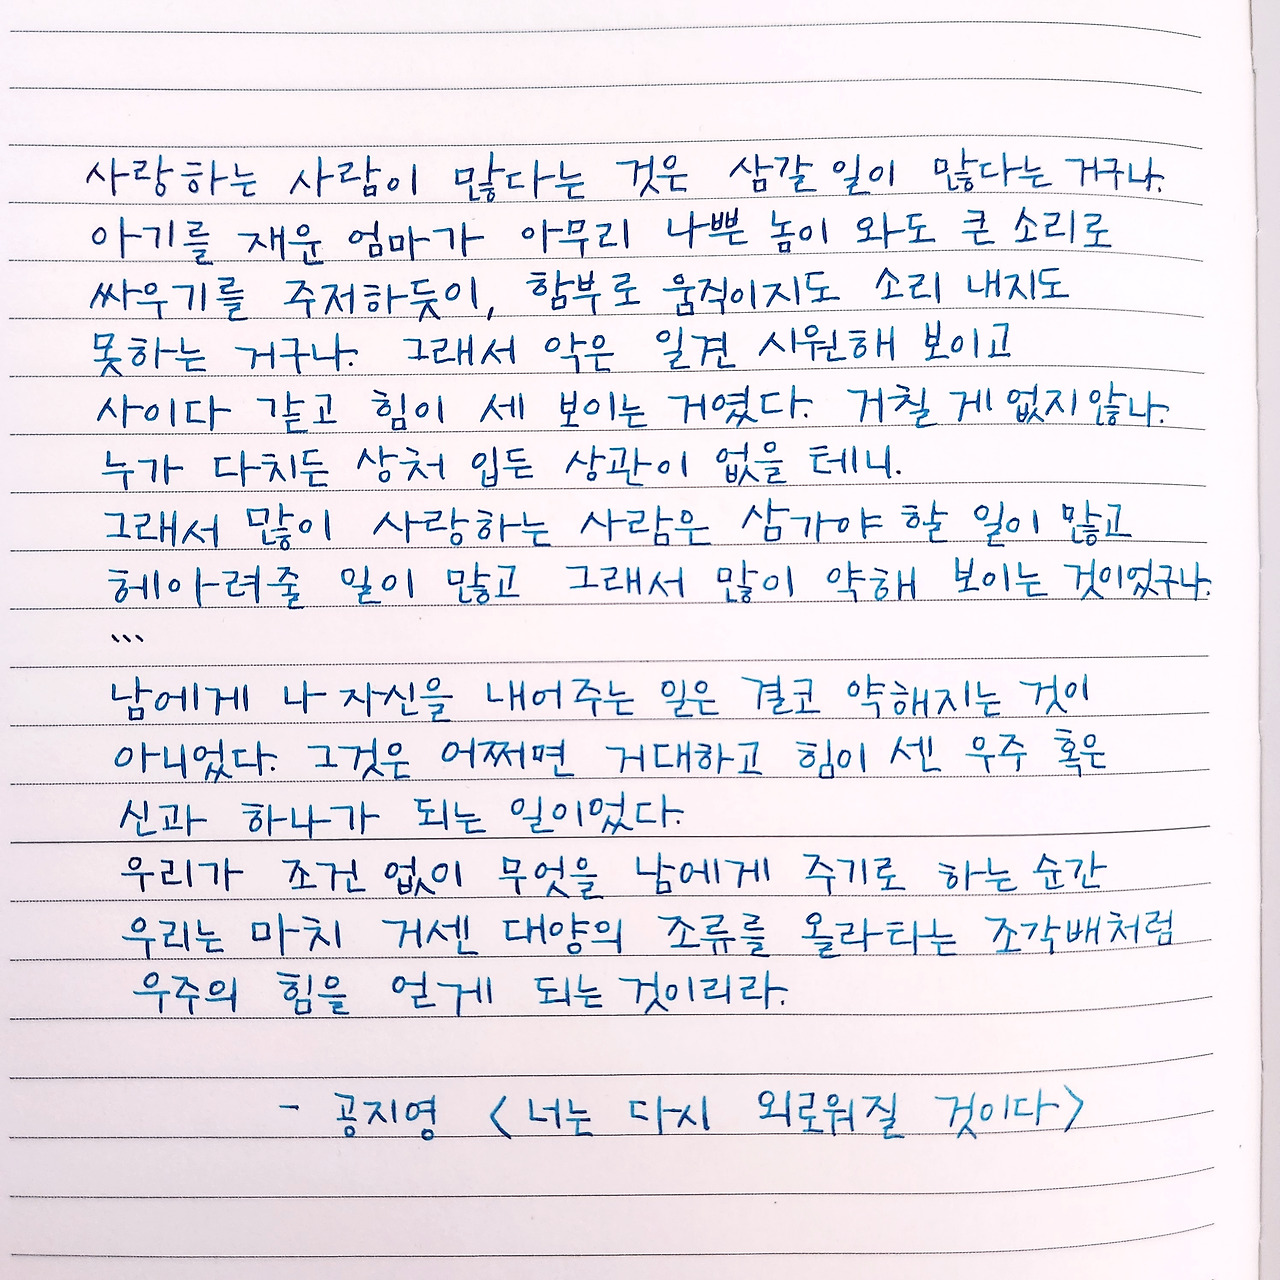 사랑하는 사람이 많다는 것은 삼갈 일이 많다는 거구나.
아기를 재운 엄마가 아무리 나쁜 놈이 와도 큰 소리로
싸우기를 주저하듯이, 함부로 움직이지도 소리 내지도
못하는 거구나. 그래서 악은 일견 시원해 보이고
사이다 같고 힘이 세 보이는 거였다. 거칠 게 없지 않나.
누가 다치든 상처 입든 상관이 없을 테니.
그래서 많이 사랑하는 사람은 삼가야 할 일이 많고
헤아려줄 일이 많고 그래서 많이 약해 보이는 것이었구나.
...
남에게 나 자신을 내어주는 일은 결코 약해지는 것이
아니었다. 그것은 어쩌면 거대하고 힘이 센 우주 혹은
신과 하나가 되는 일이었다.
우리가 조건 없이 무엇을 남에게 주기로 하는 순간
우리는 마치 거센 대양의 조류를 올라타는 조각배처럼
우주의 힘을 얻게 되는 것이리라.
- 공지영 <너는 다시 외로워질 것이다>